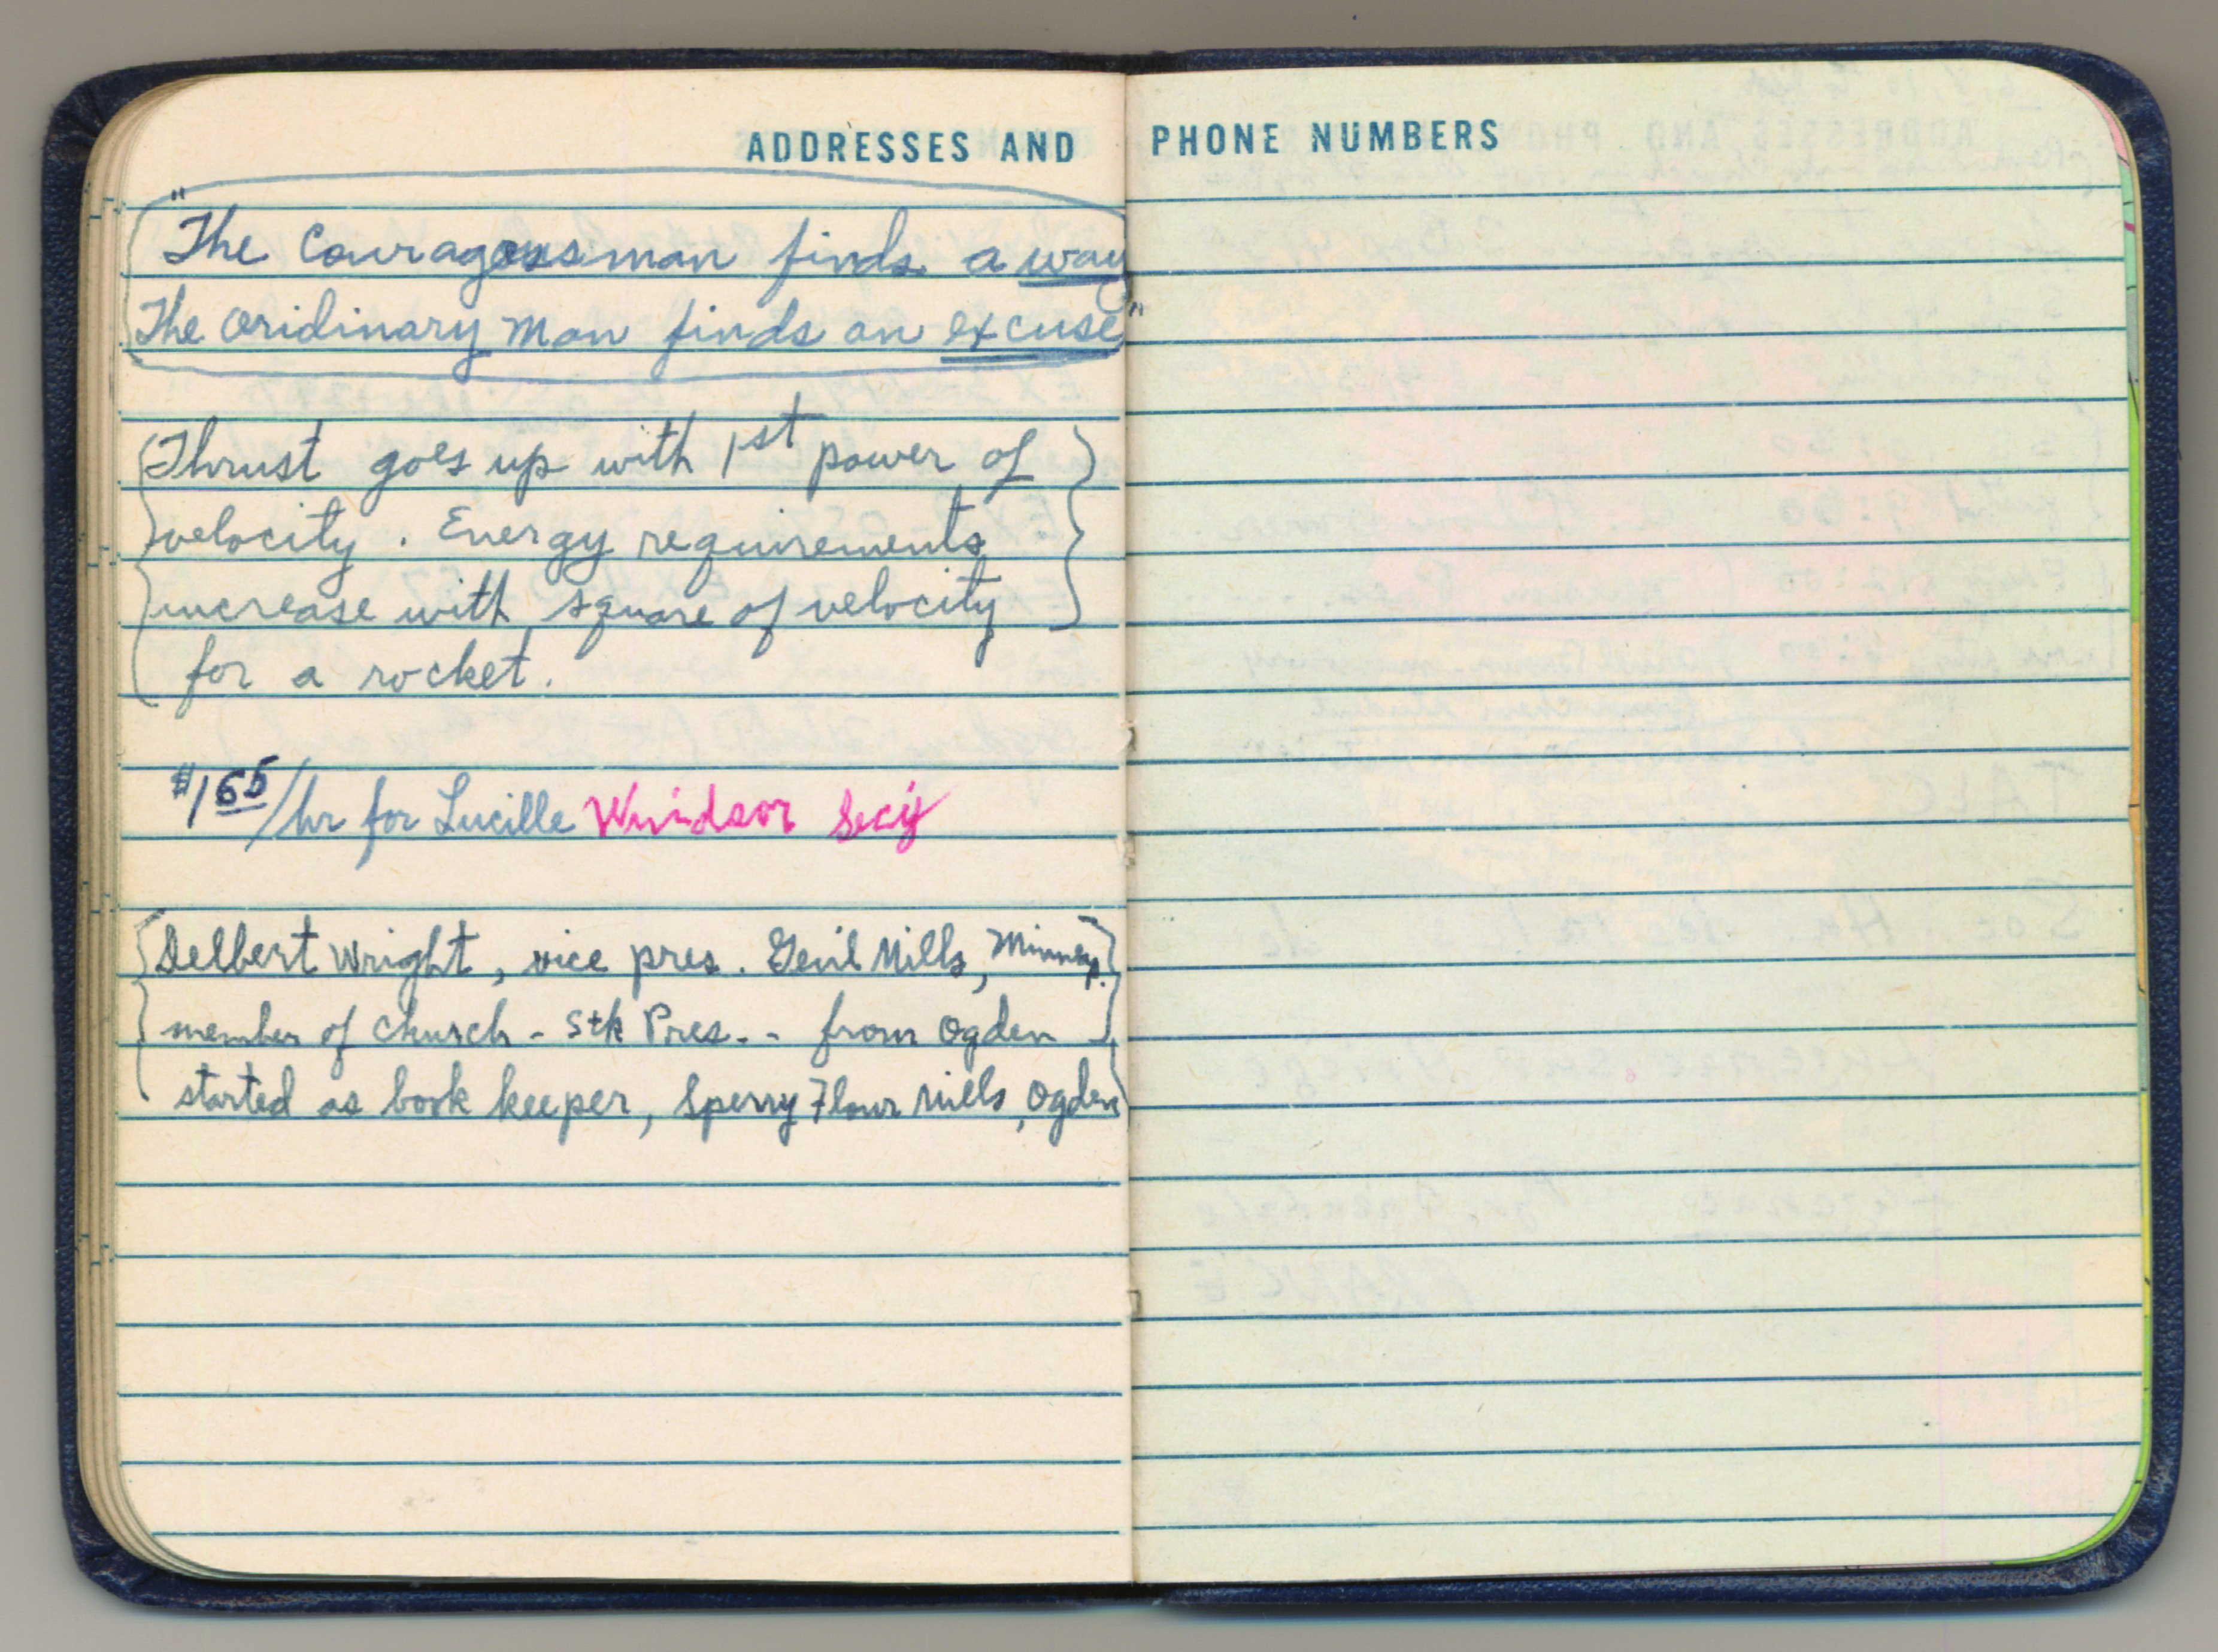 ADDRESSES AND PHONE NUMBERS
"The Couragous man finds a way
The oridinary man finds an excuse"
Thrust goes up with 1st power of
velocity. Energy requirements
increase with square of velocity
for a rocket.
$1 65/hr for Lucille Windsor Secy
Delbert Wright, vice pres. Genl Mills, Minneap.
member of church - Stk Pres. - from Ogden -
started as book keeper, Sperry Flour Mills, Ogden